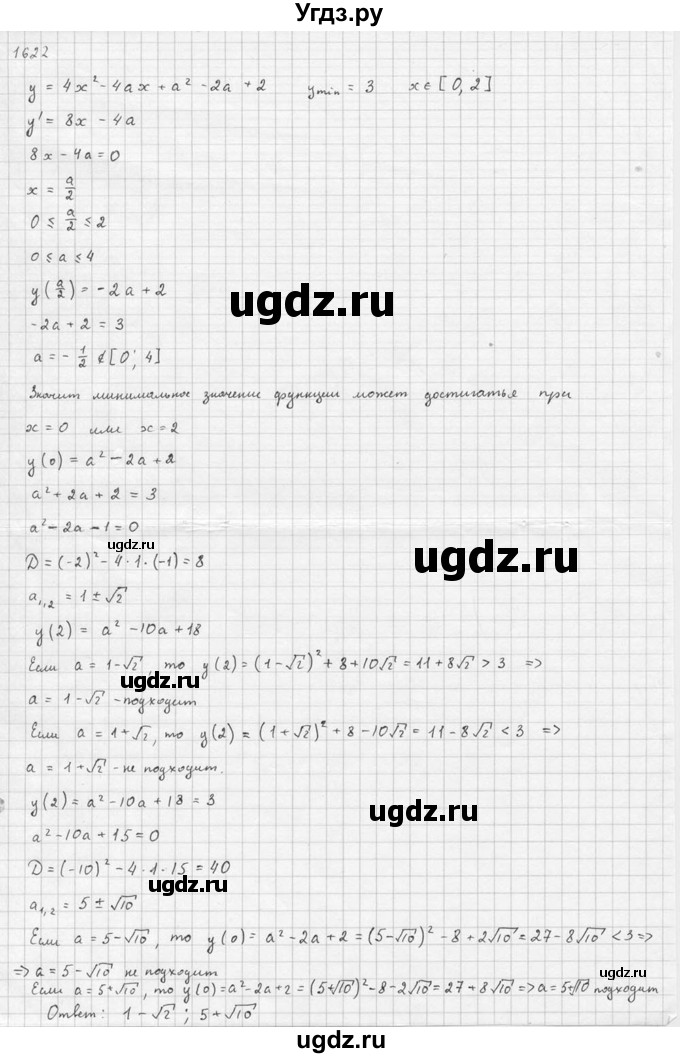 Угдз.ру
1622
y = 4x² - 4ax + a² - 2a + 2    y min = 3    x ∈ [0, 2]
y' = 8x - 4a
8x - 4a = 0
x = a/2
0 ≤ a/2 ≤ 2
0 ≤ a ≤ 4
y(a/2) = -2a + 2
ugdz.ru
-2a + 2 = 3
a = -1/2 ∉ [0; 4]
Значит минимальное значение функции может достигатья при
x = 0 или x = 2
y(0) = a² - 2a + 2
a² + 2a + 2 = 3
a² - 2a - 1 = 0
ugdz.ru
ugdz.ru
D = (-2)² - 4·1·(-1) = 8
a₁,₂ = 1 ± √2
y(2) = a² - 10a + 18
Если a = 1-√2, то y(2) = (1-√2)² + 8 + 10√2 = 11 + 8√2 > 3 =>
ugdz.ru
a = 1-√2 - подходит
Если a = 1+√2, то y(2) = (1+√2)² + 8 - 10√2 = 11 - 8√2 < 3 =>
a = 1+√2 - не подходит.
y(2) = a² - 10a + 18 = 3
ugdz.ru
a² - 10a + 15 = 0
D = (-10)² - 4·1·15 = 40
ugdz.ru
a₁,₂ = 5 ± √10
Если a = 5-√10, то y(0) = a² - 2a + 2 = (5-√10)² - 8 + 2√10 = 27 - 8√10 < 3 =>
ugdz.ru
=> a = 5-√10 не подходит
Если a = 5+√10, то y(0) = a² - 2a + 2 = (5+√10)² - 8 - 2√10 = 27 + 8√10 => a = 5+√10 подходит
Ответ: 1-√2; 5+√10